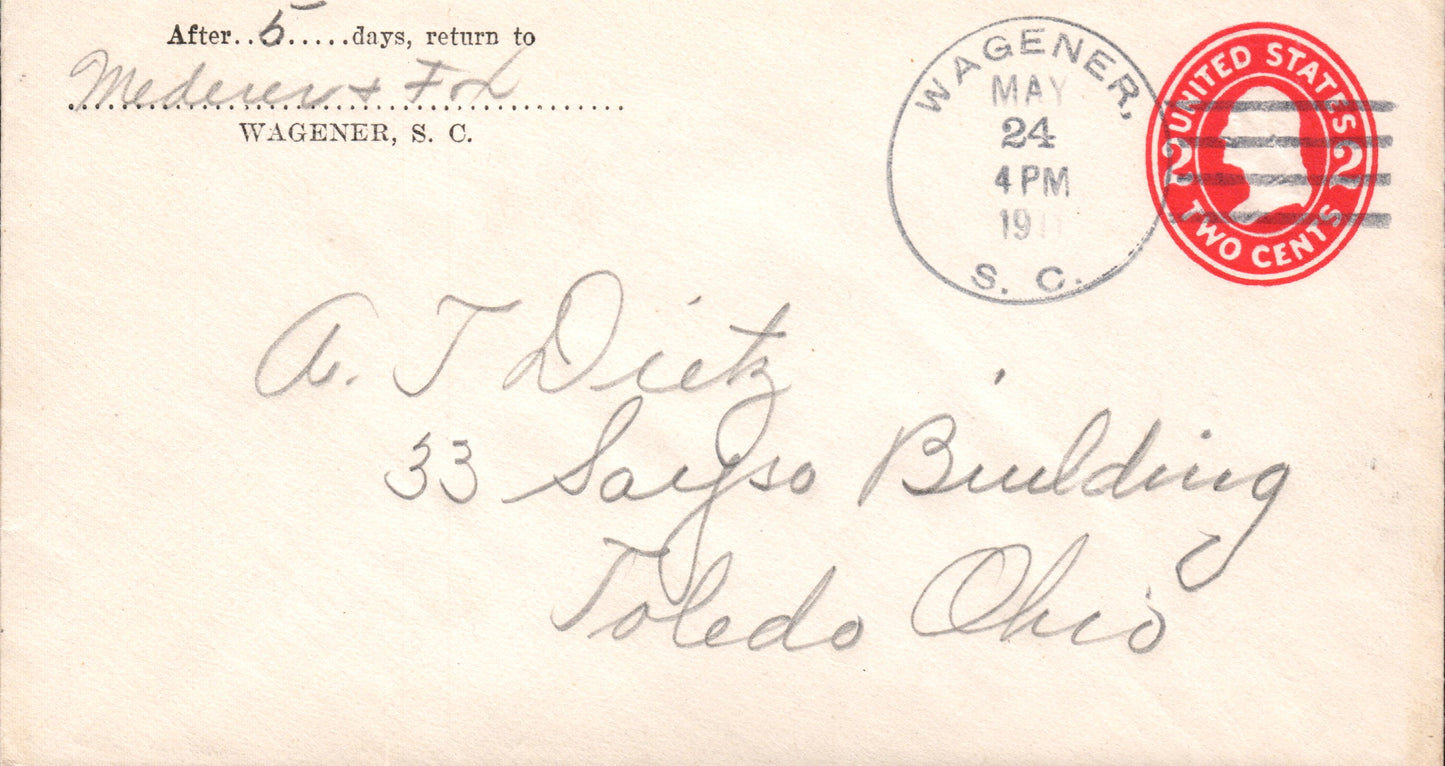 After..5.....days, return to
& Fox
WAGENER, S. C.
WAGENER,
MAY
24
4 PM
19
S. C.
UNITED STATES
2 2
TWO CENTS
A. T Dietz
33 Sayso Building
Toledo Ohio